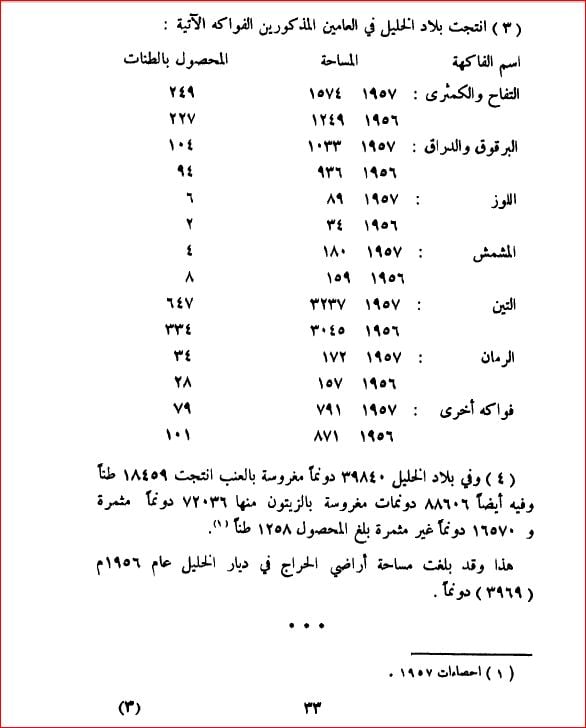 ( ٣ ) انتجت بلاد الخليل في العامين المذكورين الفواكه الآتية :
اسم الفاكهة المساحة المحصول بالطنات
التفاح والكمثرى : ١٩٥٧ ١٥٧٤ ٢٤٩
١٩٥٦ ١٢٤٩ ٢٢٧
البرقوق والدراق : ١٩٥٧ ١٠٣٣ ١٠٤
١٩٥٦ ٩٣٦ ٩٤
اللوز : ١٩٥٧ ٨٩ ٦
١٩٥٦ ٣٤ ٢
المشمش : ١٩٥٧ ١٨٠ ٤
١٩٥٦ ١٥٩ ٨
التين : ١٩٥٧ ٣٢٣٧ ٦٤٧
١٩٥٦ ٣٠٤٥ ٣٣٤
الرمان : ١٩٥٧ ١٧٢ ٣٤
١٩٥٦ ١٥٧ ٢٨
فواكه أخرى : ١٩٥٧ ٧٩١ ٧٩
١٩٥٦ ٨٧١ ١٠١
( ٤ ) وفي بلاد الخليل ٣٩٨٤٠ دونماً مغروسة بالعنب انتجت ١٨٤٥٩ طناً
وفيه أيضاً ٨٨٦٠٦ دونمات مغروسة بالزيتون منها ٧٢٠٣٦ دونماً مثمرة
و ١٦٥٧٠ دونماً غير مثمرة بلغ المحصول ١٢٥٨ طناً (١).
هذا وقد بلغت مساحة أراضي الحراج في ديار الخليل عام ١٩٥٦م
( ٣٩٦٩ ) دونماً .
• • •
( ١ ) احصاءات ١٩٥٧ .
٣٣ (٣)